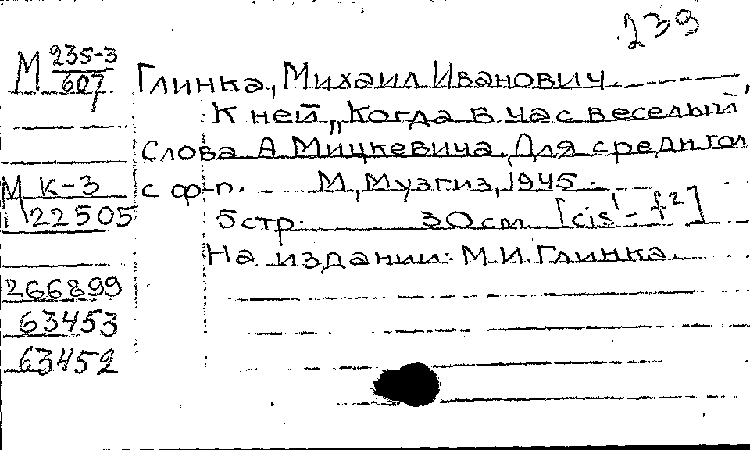 239
М 235-3/607 Глинка, Михаил Иванович
К ней „Когда в час веселый"
Слова А. Мицкевича. Для средн. гол.
М К-3 с ф-п. М., Музгиз, 1945.
22505 5 стр. 30 см [cis¹-f²]
На издании: М.И. Глинка.
266899
63453
63452